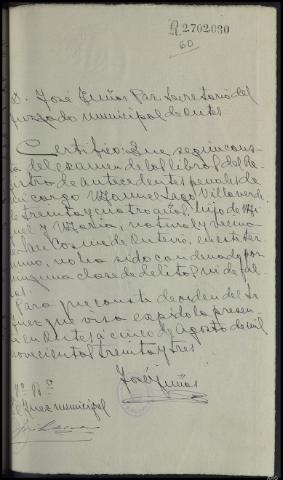 R.2702.030
60
D. José Tuñas Paz Secretario del
Juzgado municipal de Outes
Certifico: Que según cons
ta del examen de los libros del Re
gistro de antecedentes penales de
mi cargo Manuel Lago Villaverde
de treinta y cuatro años, hijo de Ma
nuel y María, natural y vecino
San Cosme de Outeiro, en este tér
mino, no ha sido condenado por
ninguna clase de delitos ni de fal
tas.
Para que conste de orden del Sr
Juez que visa expido la presen
te en Outes a cinco de Agosto de mil
novecientos treinta y tres
José Tuñas
Vº Bº
El Juez municipal